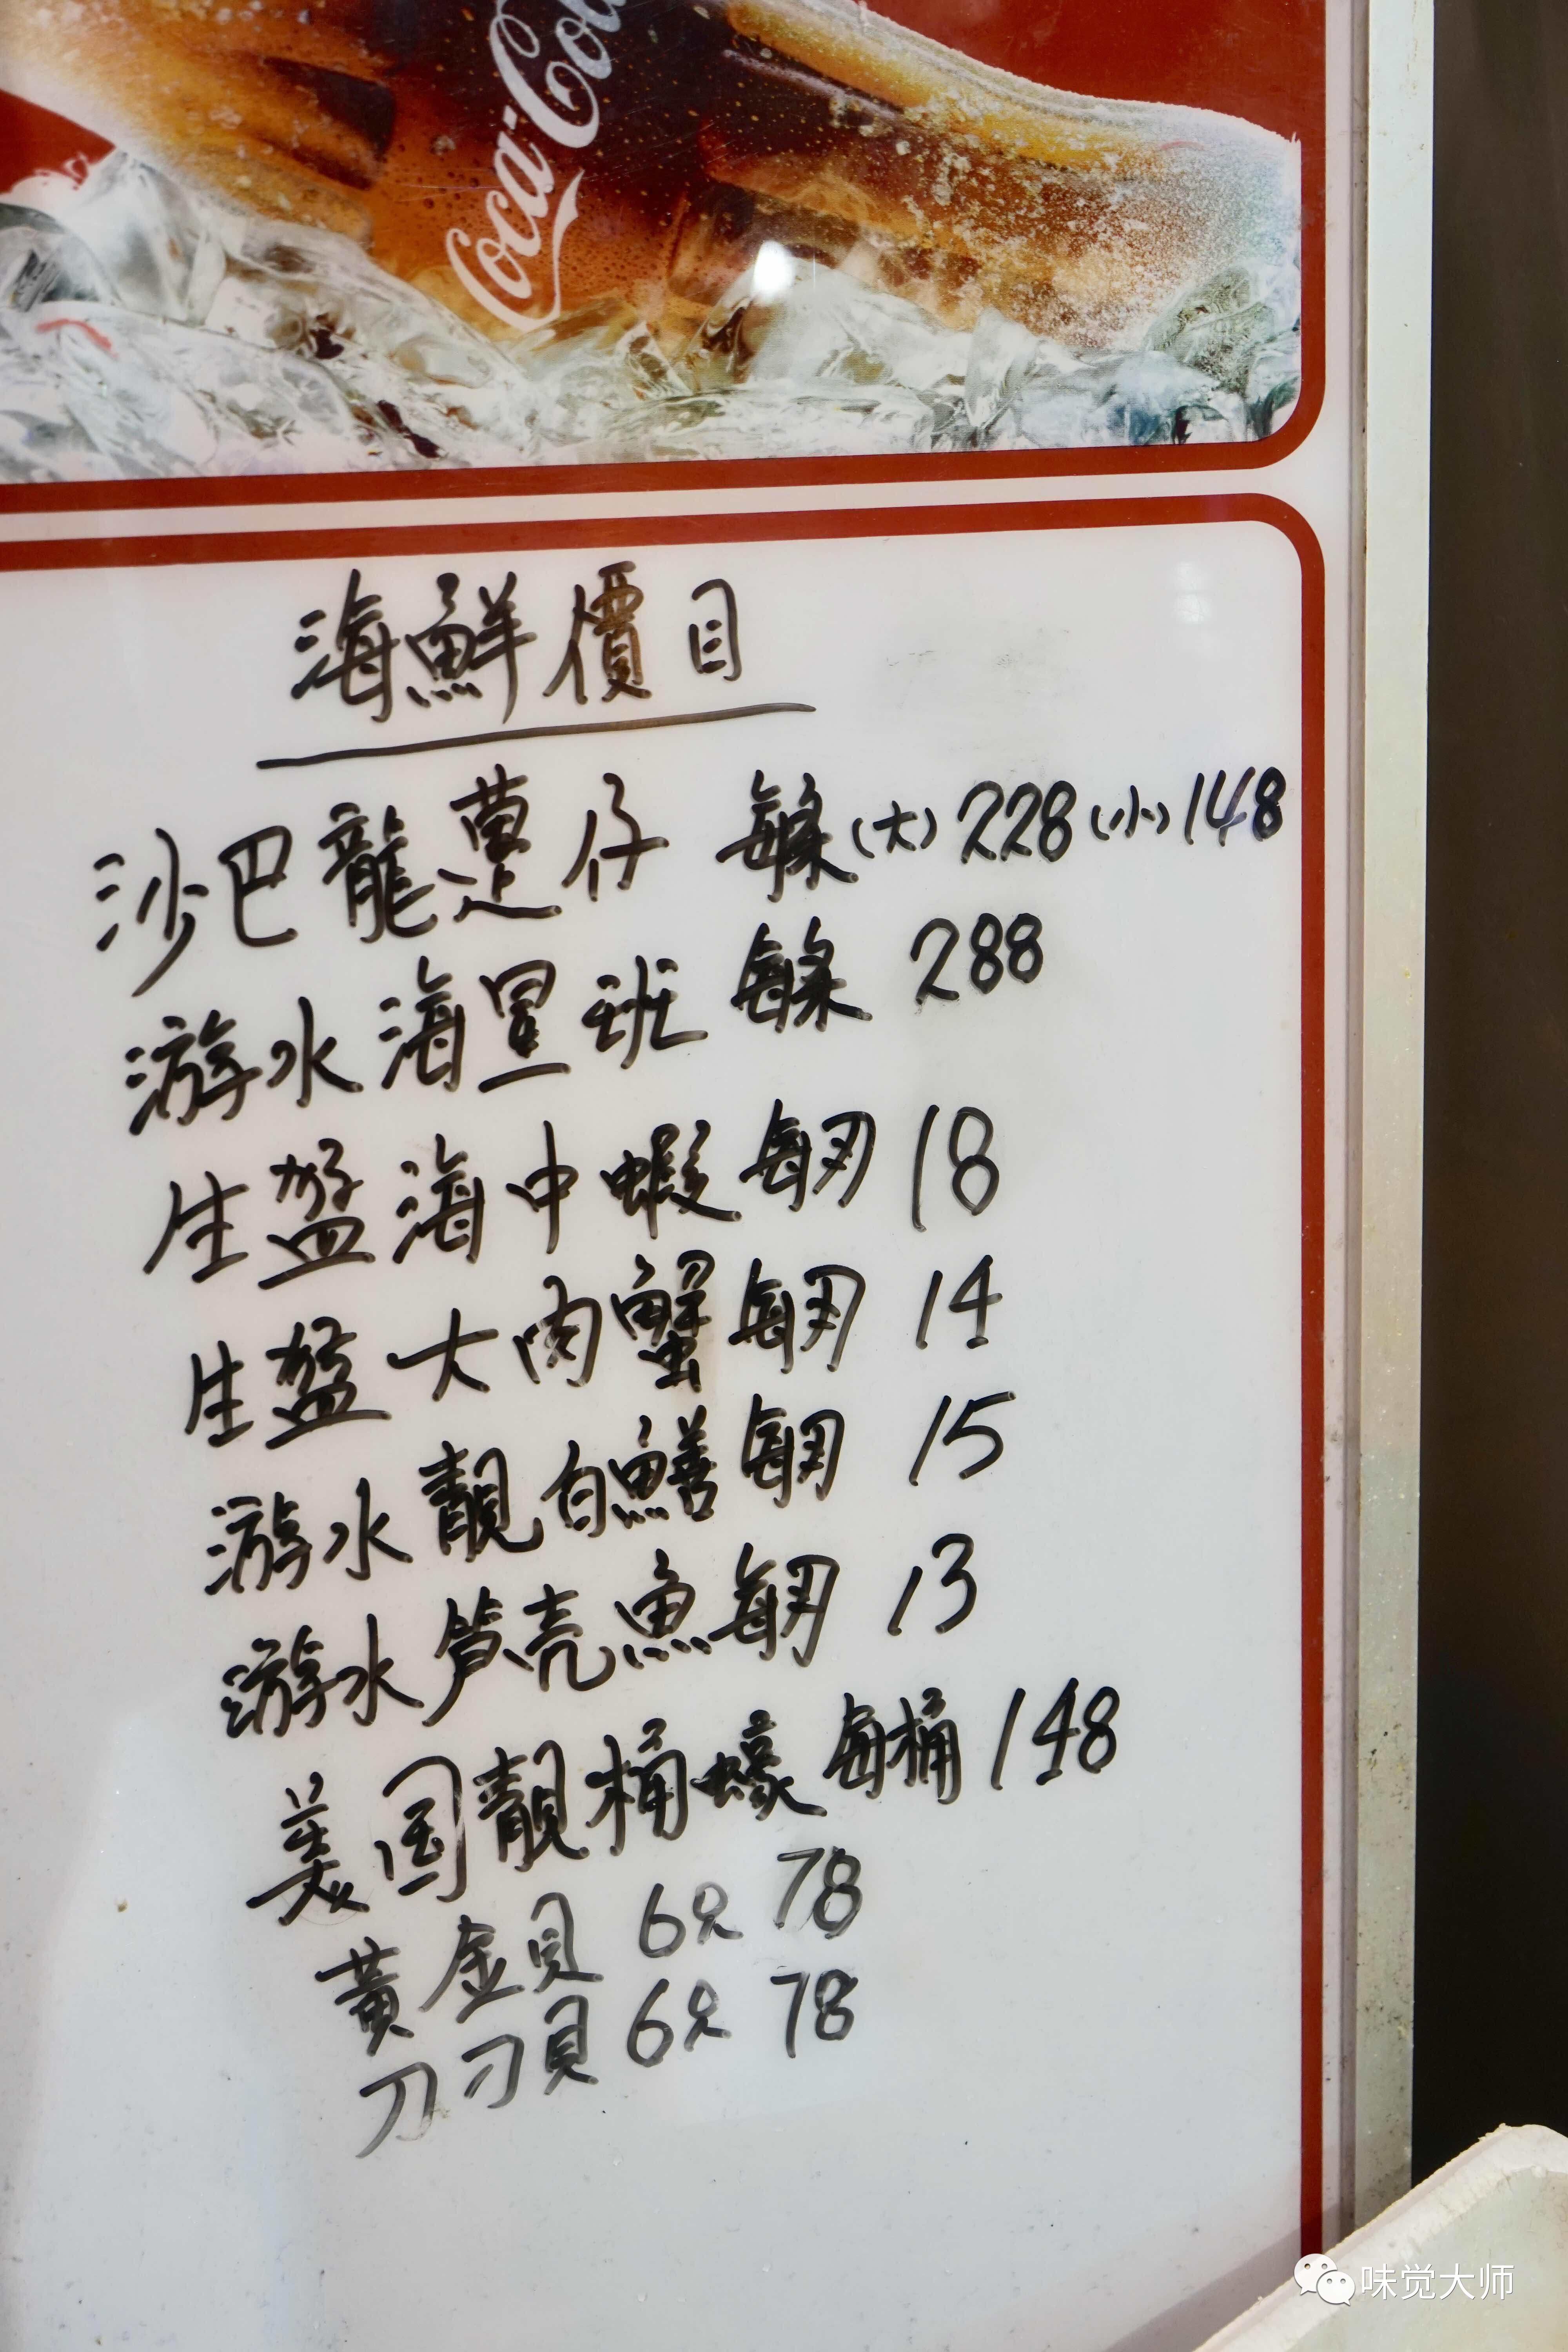 Coca-Cola
海鮮價目
沙巴龍躉仔 每條(大)228(小)148
游水海星班 每條 288
生猛海中蝦 每刄 18
生猛大肉蟹 每刄 14
游水靚白鱔 每刄 15
游水笋壳魚 每刄 13
美国靚桶蠔 每桶 148
黃金貝 6只 78
刀刁貝 6只 78
味觉大师